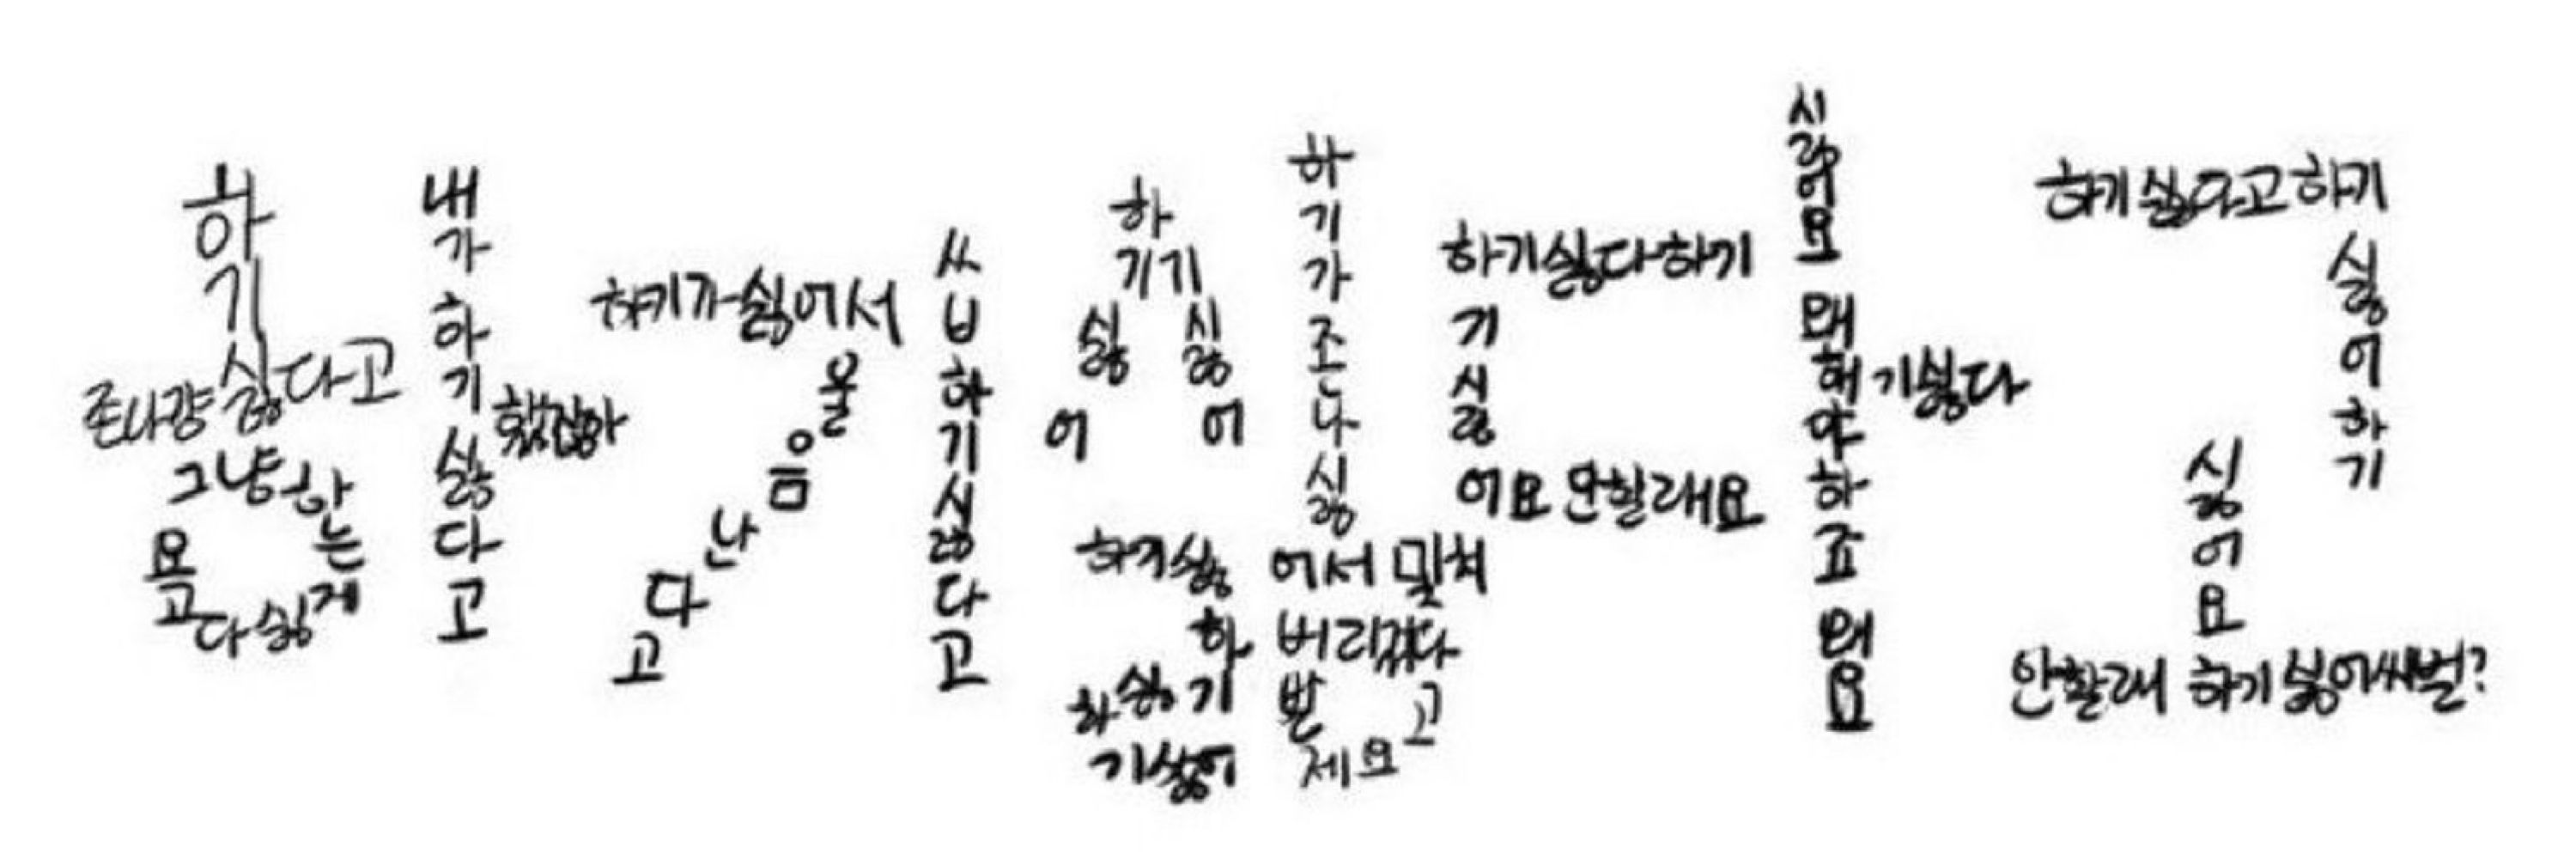 하기
존나걍싫다고
그냥하는게싫다고요
내가하기싫다고
했잖아
하기가싫어서
울음난다고
쓰ㅂ하기싫다고
하
기기
싫 싫
어 어
하기싫
하
하싫기
기싫어
하기가조나싫
어서
버리겄다
고
제요
하기싫다하기
기싫
어요 안할래요
싫어요 왜해야하죠 왜요
기싫다
하기싫다고하기
싫어하기
싫어요
안할래 하기싫어씨벌?